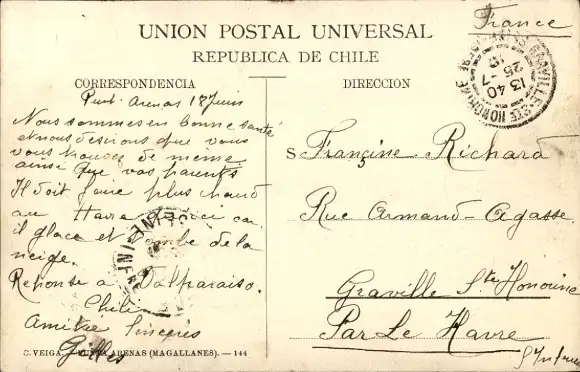 France
UNION POSTAL UNIVERSAL
REPUBLICA DE CHILE
CORRESPONDENCIA
DIRECCION
Punt Arenas 18 Juin
Nous sommes en bonne santé
et nous desirons que vous
vous trouvez de meme
ainsi que vos parents
Il doit faire plus chaud
au Havre qu'ici car
il glace et tombe de la
neige.
Reponse a Valparaiso.
Chili
Amitie Sinceres
Gilles
S
Françine Richard
Rue Armand-Agasse
Graville Ste Honorine
Par Le Havre
S Infre
GRAVILLE-STE HONORINE
13 40
25 -7
C. VEIGA. - PUNTA ARENAS (MAGALLANES). — 144